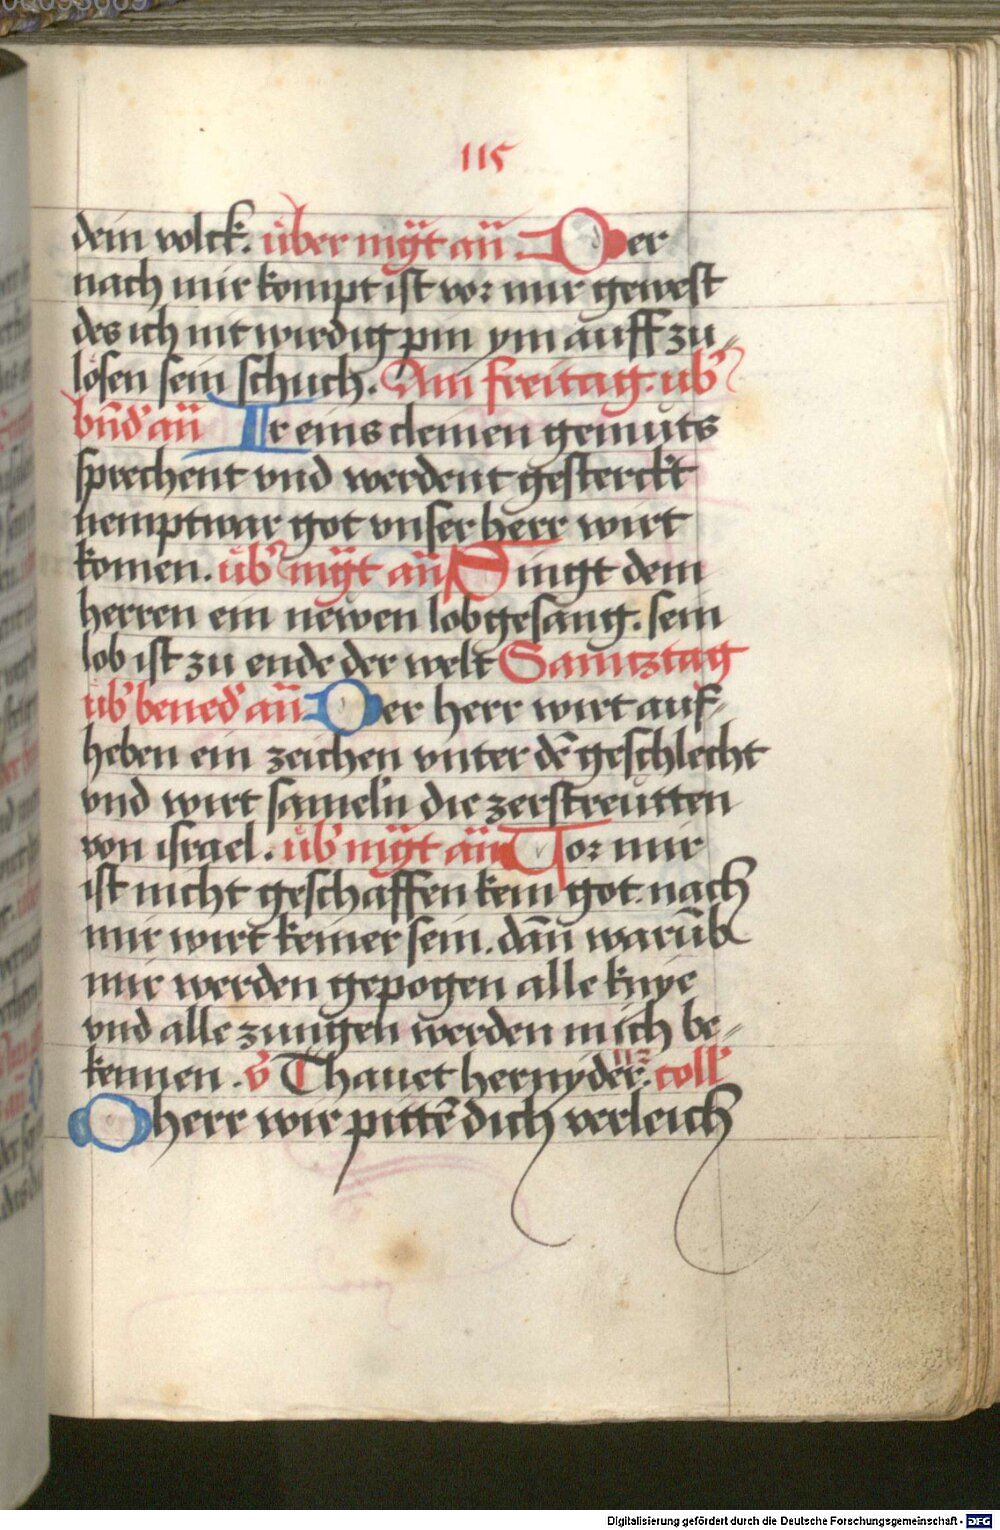 115
dein volck. über mgt̄ an̄. Der
nach mir kompt ist vor mir gewest
des ich nit wirdig pin ym auff zu„
lösen sein schuch. Am freitag. ub᾽
bn̄d᾽ an̄ Ir eins cleinen gemüts
sprechent vnd werdent gesterckt
nempt war got vnser herr wirt
komen. üb᾽ mgt̄ an̄ Singt dem
herren ein newen lobgesang. sein
lob ist zu ende der welt Samtztag
üb᾽ bened᾽ an̄. Der herr wirt auf„
heben ein zeichen vnter dē geschlecht
vnd wirt sameln die zerstreütten
von israel. üb᾽ mgt̄ an̄ Vor mir
ist nicht geschaffen kein got. nach
mir wirt keiner sein. dan̄ warūb
mir werden gepogen alle knye
vnd alle zungen werden mich be„
kennen. v̄ Thauet hernyder. coll᾽
O herr wir pittē dich verleich
Digitalisierung gefördert durch die Deutsche Forschungsgemeinschaft - DFG